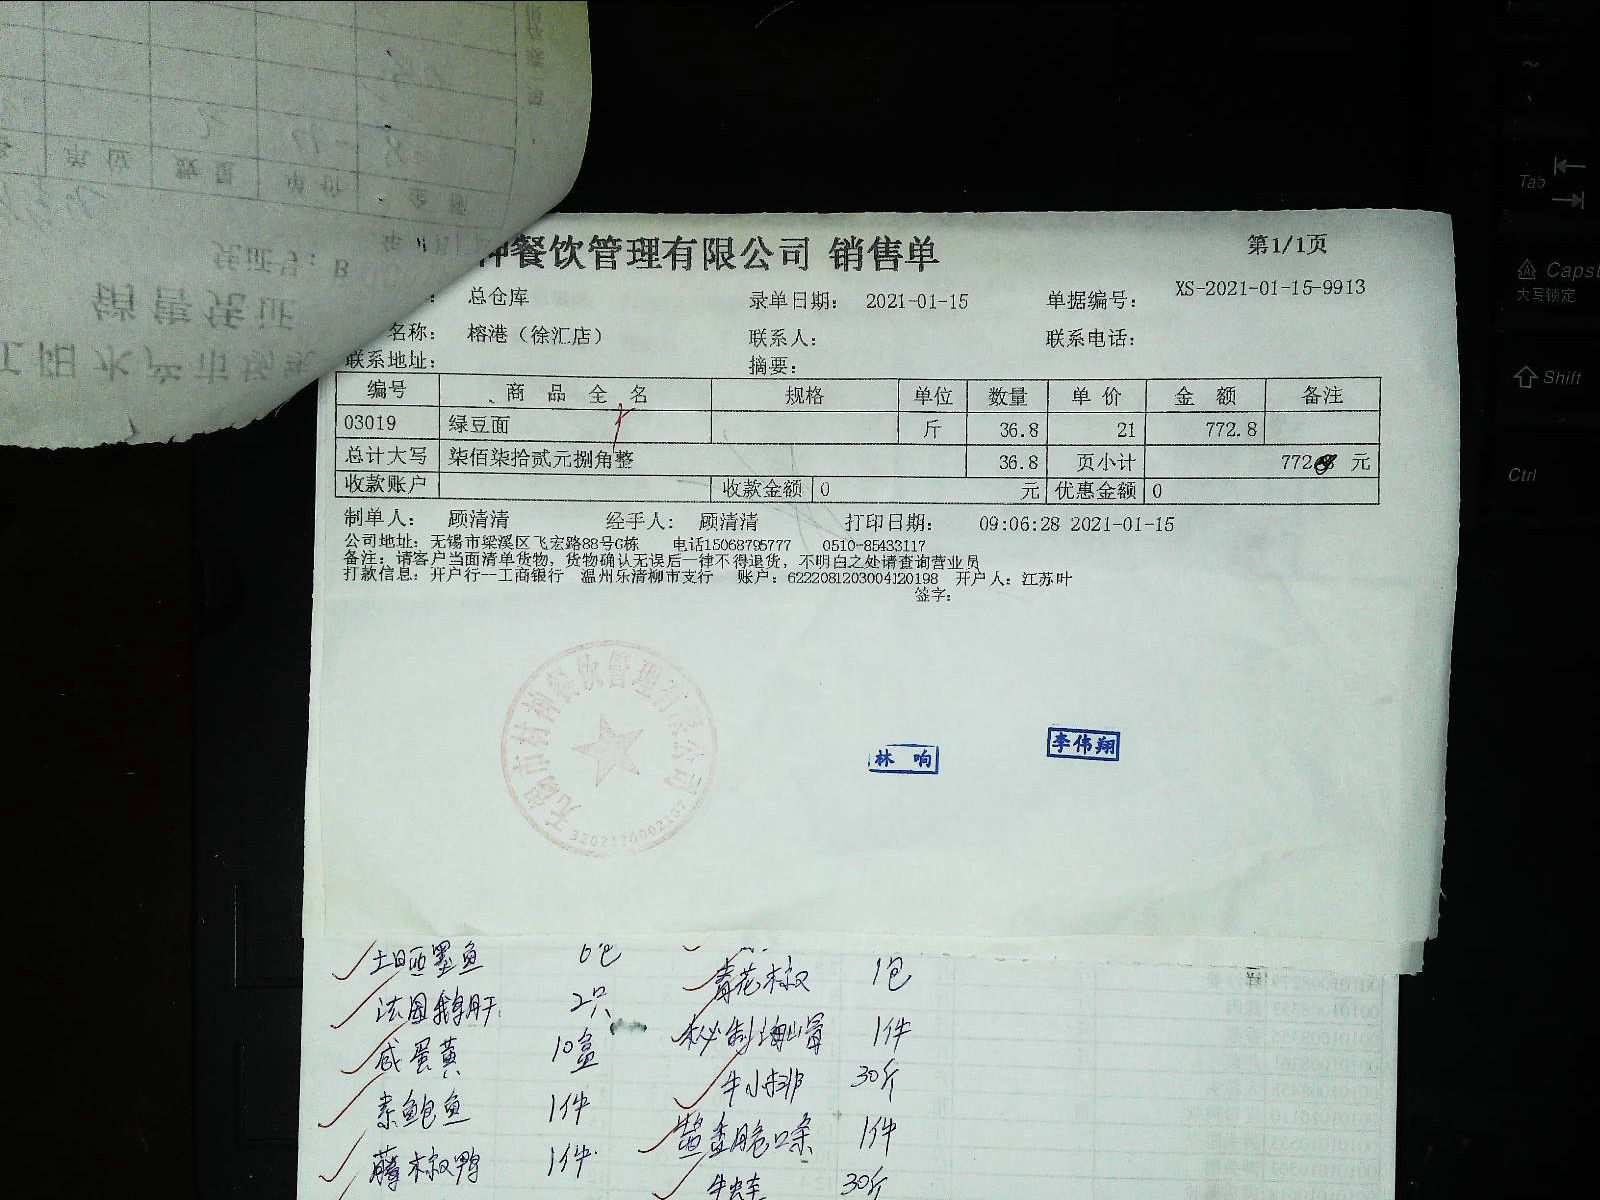 神餐饮管理有限公司 销售单
第1/1页
总仓库 录单日期： 2021-01-15 单据编号： XS-2021-01-15-9913
名称： 榕港（徐汇店） 联系人： 联系电话：
联系地址： 摘要：
编号 商品全名 规格 单位 数量 单价 金额 备注
03019 绿豆面 斤 36.8 21 772.8
总计大写 柒佰柒拾贰元捌角整 36.8 页小计 772. 元
收款账户 收款金额 0 元 优惠金额 0
制单人： 顾清清 经手人： 顾清清 打印日期： 09:06:28 2021-01-15
公司地址：无锡市梁溪区飞宏路88号G栋 电话15068795777 0510-85433117
备注：请客户当面清单货物，货物确认无误后一律不得退货，不明白之处请查询营业员
打款信息：开户行一工商银行 温州乐清柳市支行 账户：6222081203004120198 开户人：江苏叶
签字：
林响
李伟翔
土晒墨鱼 6包 青花椒 1包
法国鹅肝 2只 秘制海山宝 1件
咸蛋黄 10盒 牛小排 30斤
素鲍鱼 1件
藤椒鸭 1件
1件
30斤
Tab
Caps
大写锁定
Shift
Ctrl
销售凭证
凭证号：
水产市场